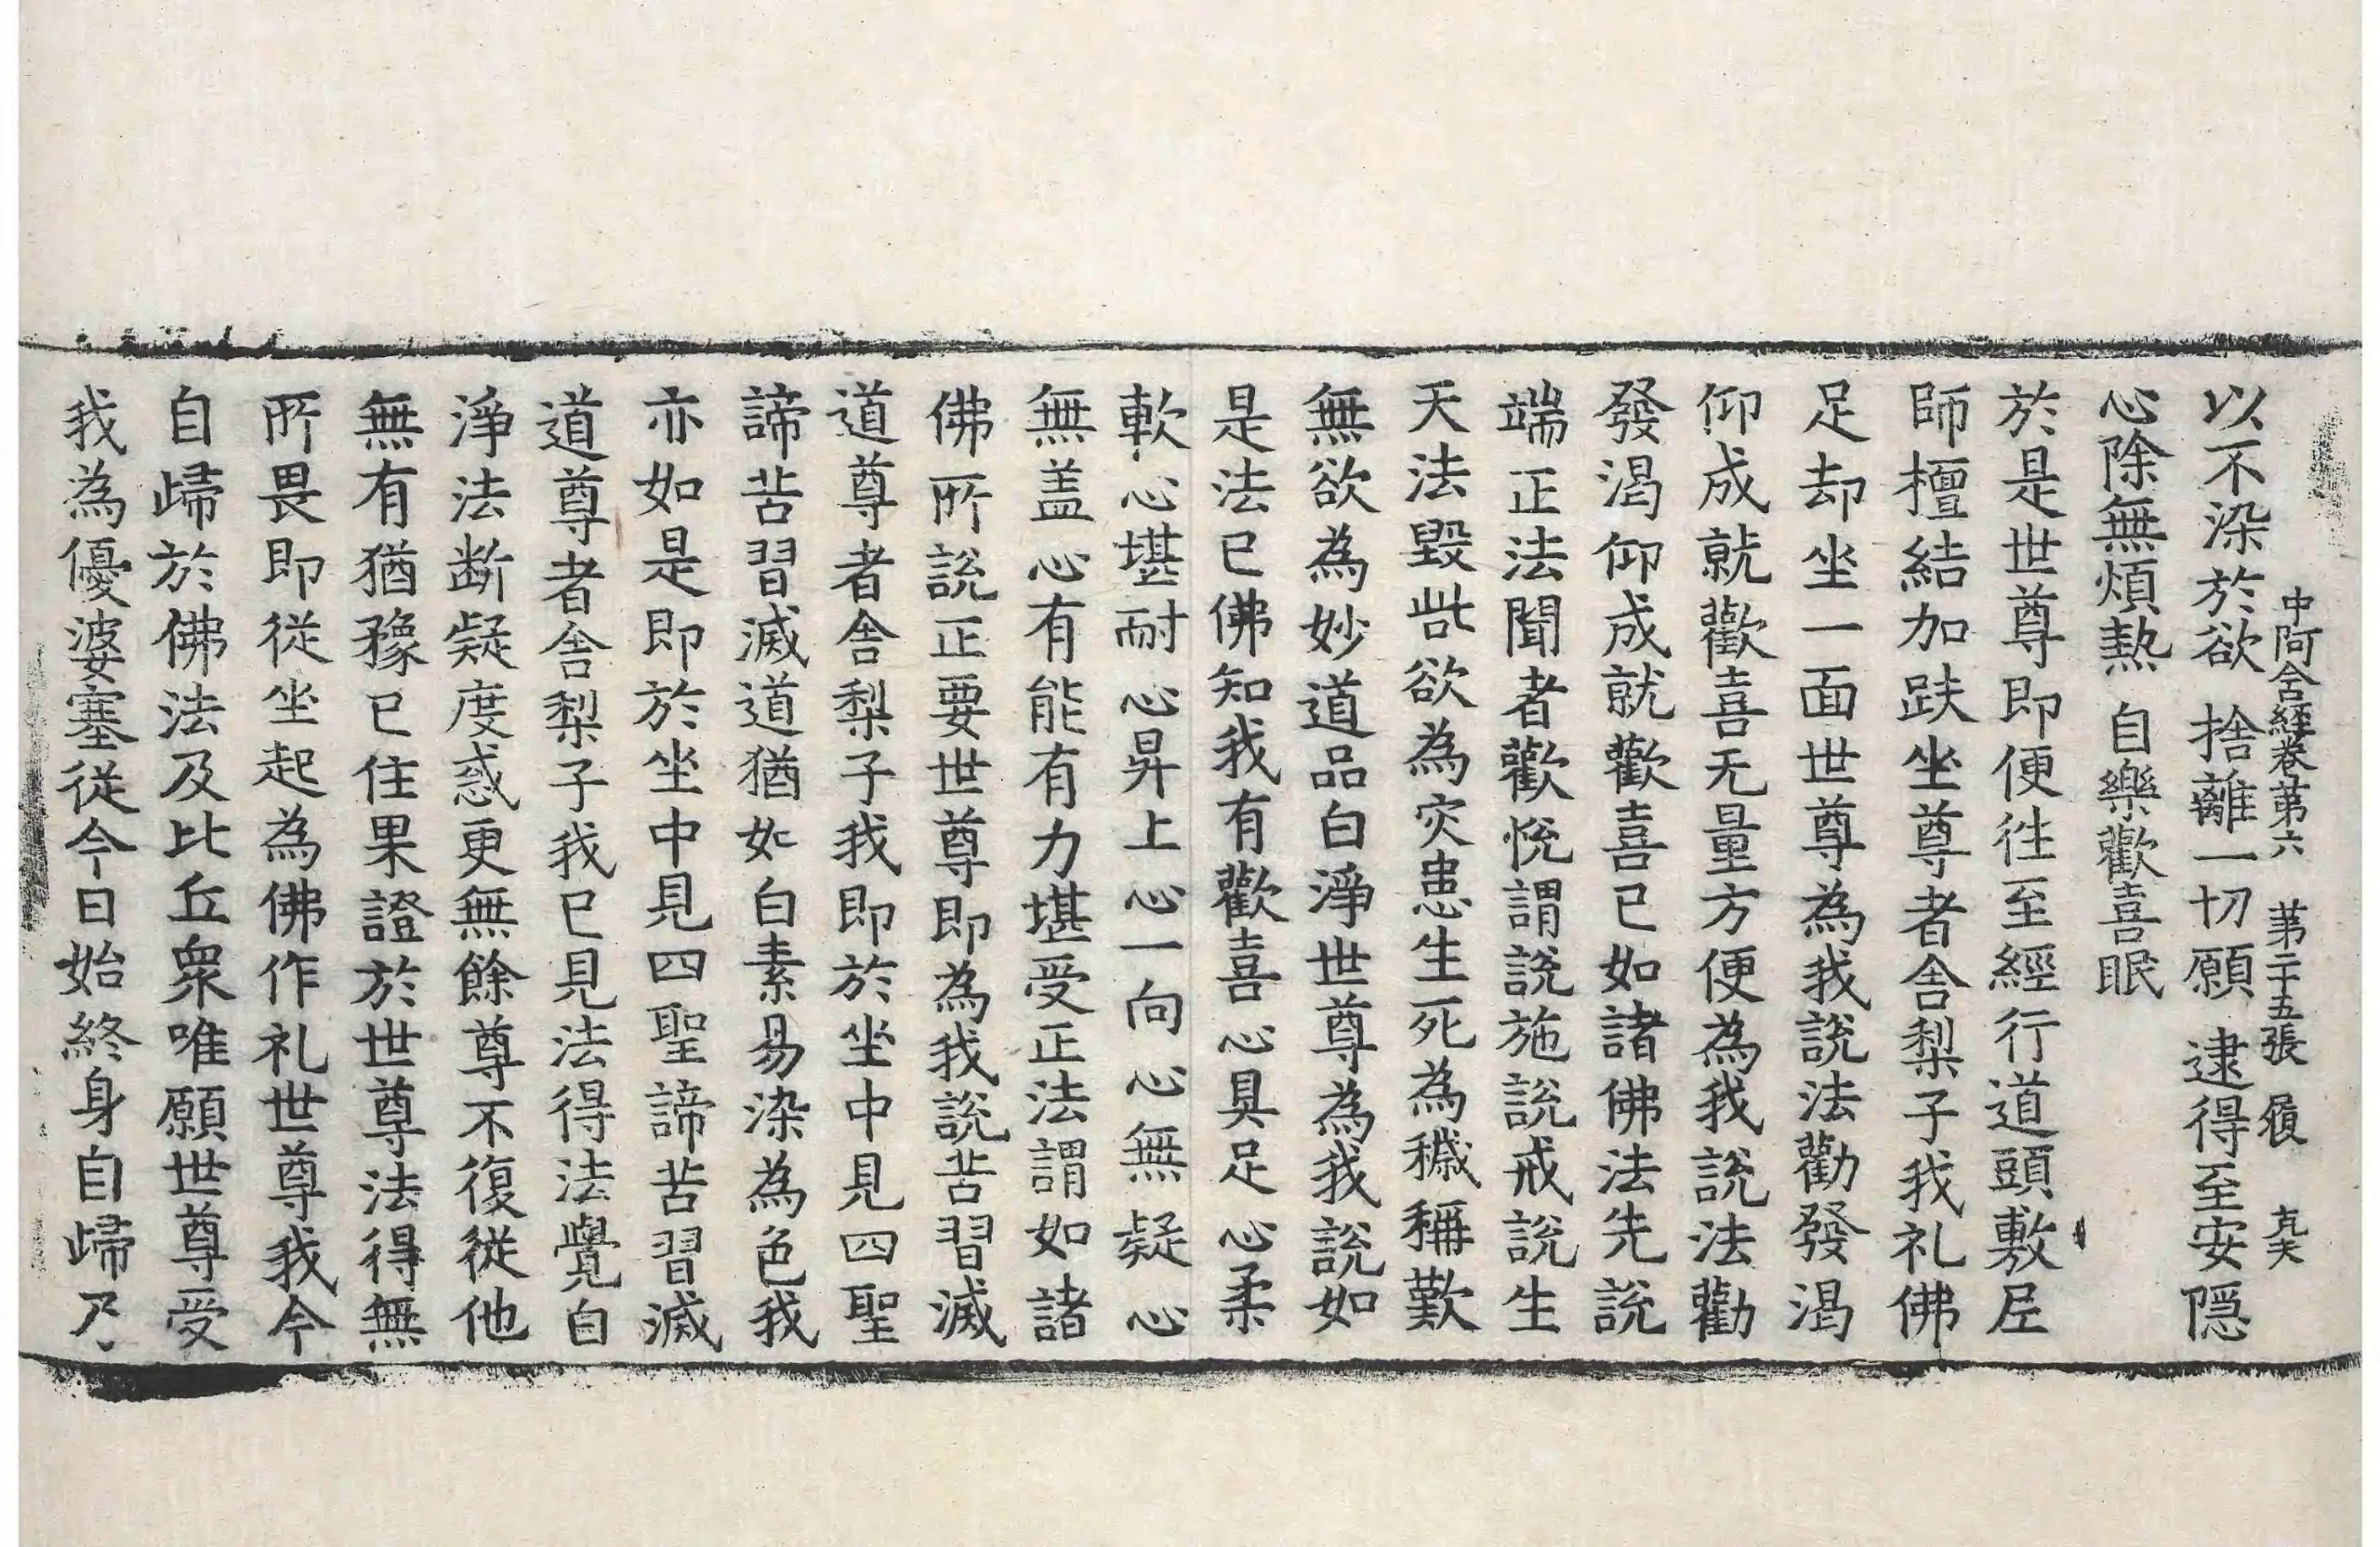 中阿含經卷第六　第二十五張　履
以不染於欲　捨離一切願　逮得至安隱
心除無煩熱　自樂歡喜眠
於是世尊即便往至經行道頭敷尼
師檀結加趺坐尊者舍梨子我礼佛
足却坐一面世尊為我說法勸發渴
仰成就歡喜无量方便為我說法勸
發渴仰成就歡喜已如諸佛法先說
端正法聞者歡悅謂說施說戒說生
天法毀呰欲為灾患生死為穢稱歎
無欲為妙道品白淨世尊為我說如
是法已佛知我有歡喜心具足心柔
軟心堪耐心昇上心一向心無疑心
無盖心有能有力堪受正法謂如諸
佛所說正要世尊即為我說苦習滅
道尊者舍梨子我即於坐中見四聖
諦苦習滅道猶如白素易染為色我
亦如是即於坐中見四聖諦苦習滅
道尊者舍梨子我已見法得法覺自
淨法断疑度惑更無餘尊不復從他
無有猶豫已住果證於世尊法得無
所畏即從坐起為佛作礼世尊我今
自歸於佛法及比丘衆唯願世尊受
我為優婆塞從今日始終身自歸乃